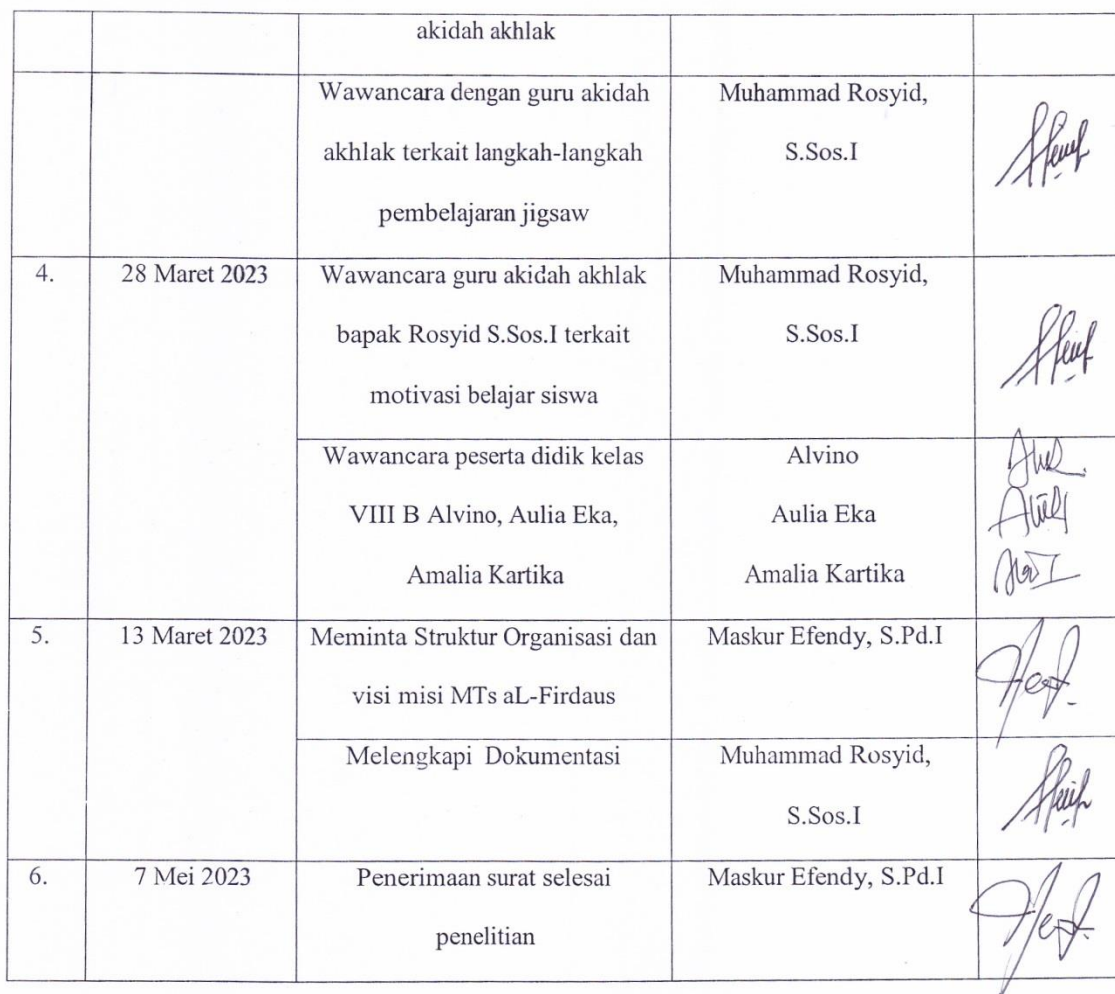 akidah akhlak
Wawancara dengan guru akidah
akhlak terkait langkah-langkah
pembelajaran jigsaw
Muhammad Rosyid,
S.Sos.I
4.
28 Maret 2023
Wawancara guru akidah akhlak
bapak Rosyid S.Sos.I terkait
motivasi belajar siswa
Muhammad Rosyid,
S.Sos.I
Wawancara peserta didik kelas
VIII B Alvino, Aulia Eka,
Amalia Kartika
Alvino
Aulia Eka
Amalia Kartika
5.
13 Maret 2023
Meminta Struktur Organisasi dan
visi misi MTs aL-Firdaus
Maskur Efendy, S.Pd.I
Melengkapi Dokumentasi
Muhammad Rosyid,
S.Sos.I
6.
7 Mei 2023
Penerimaan surat selesai
penelitian
Maskur Efendy, S.Pd.I